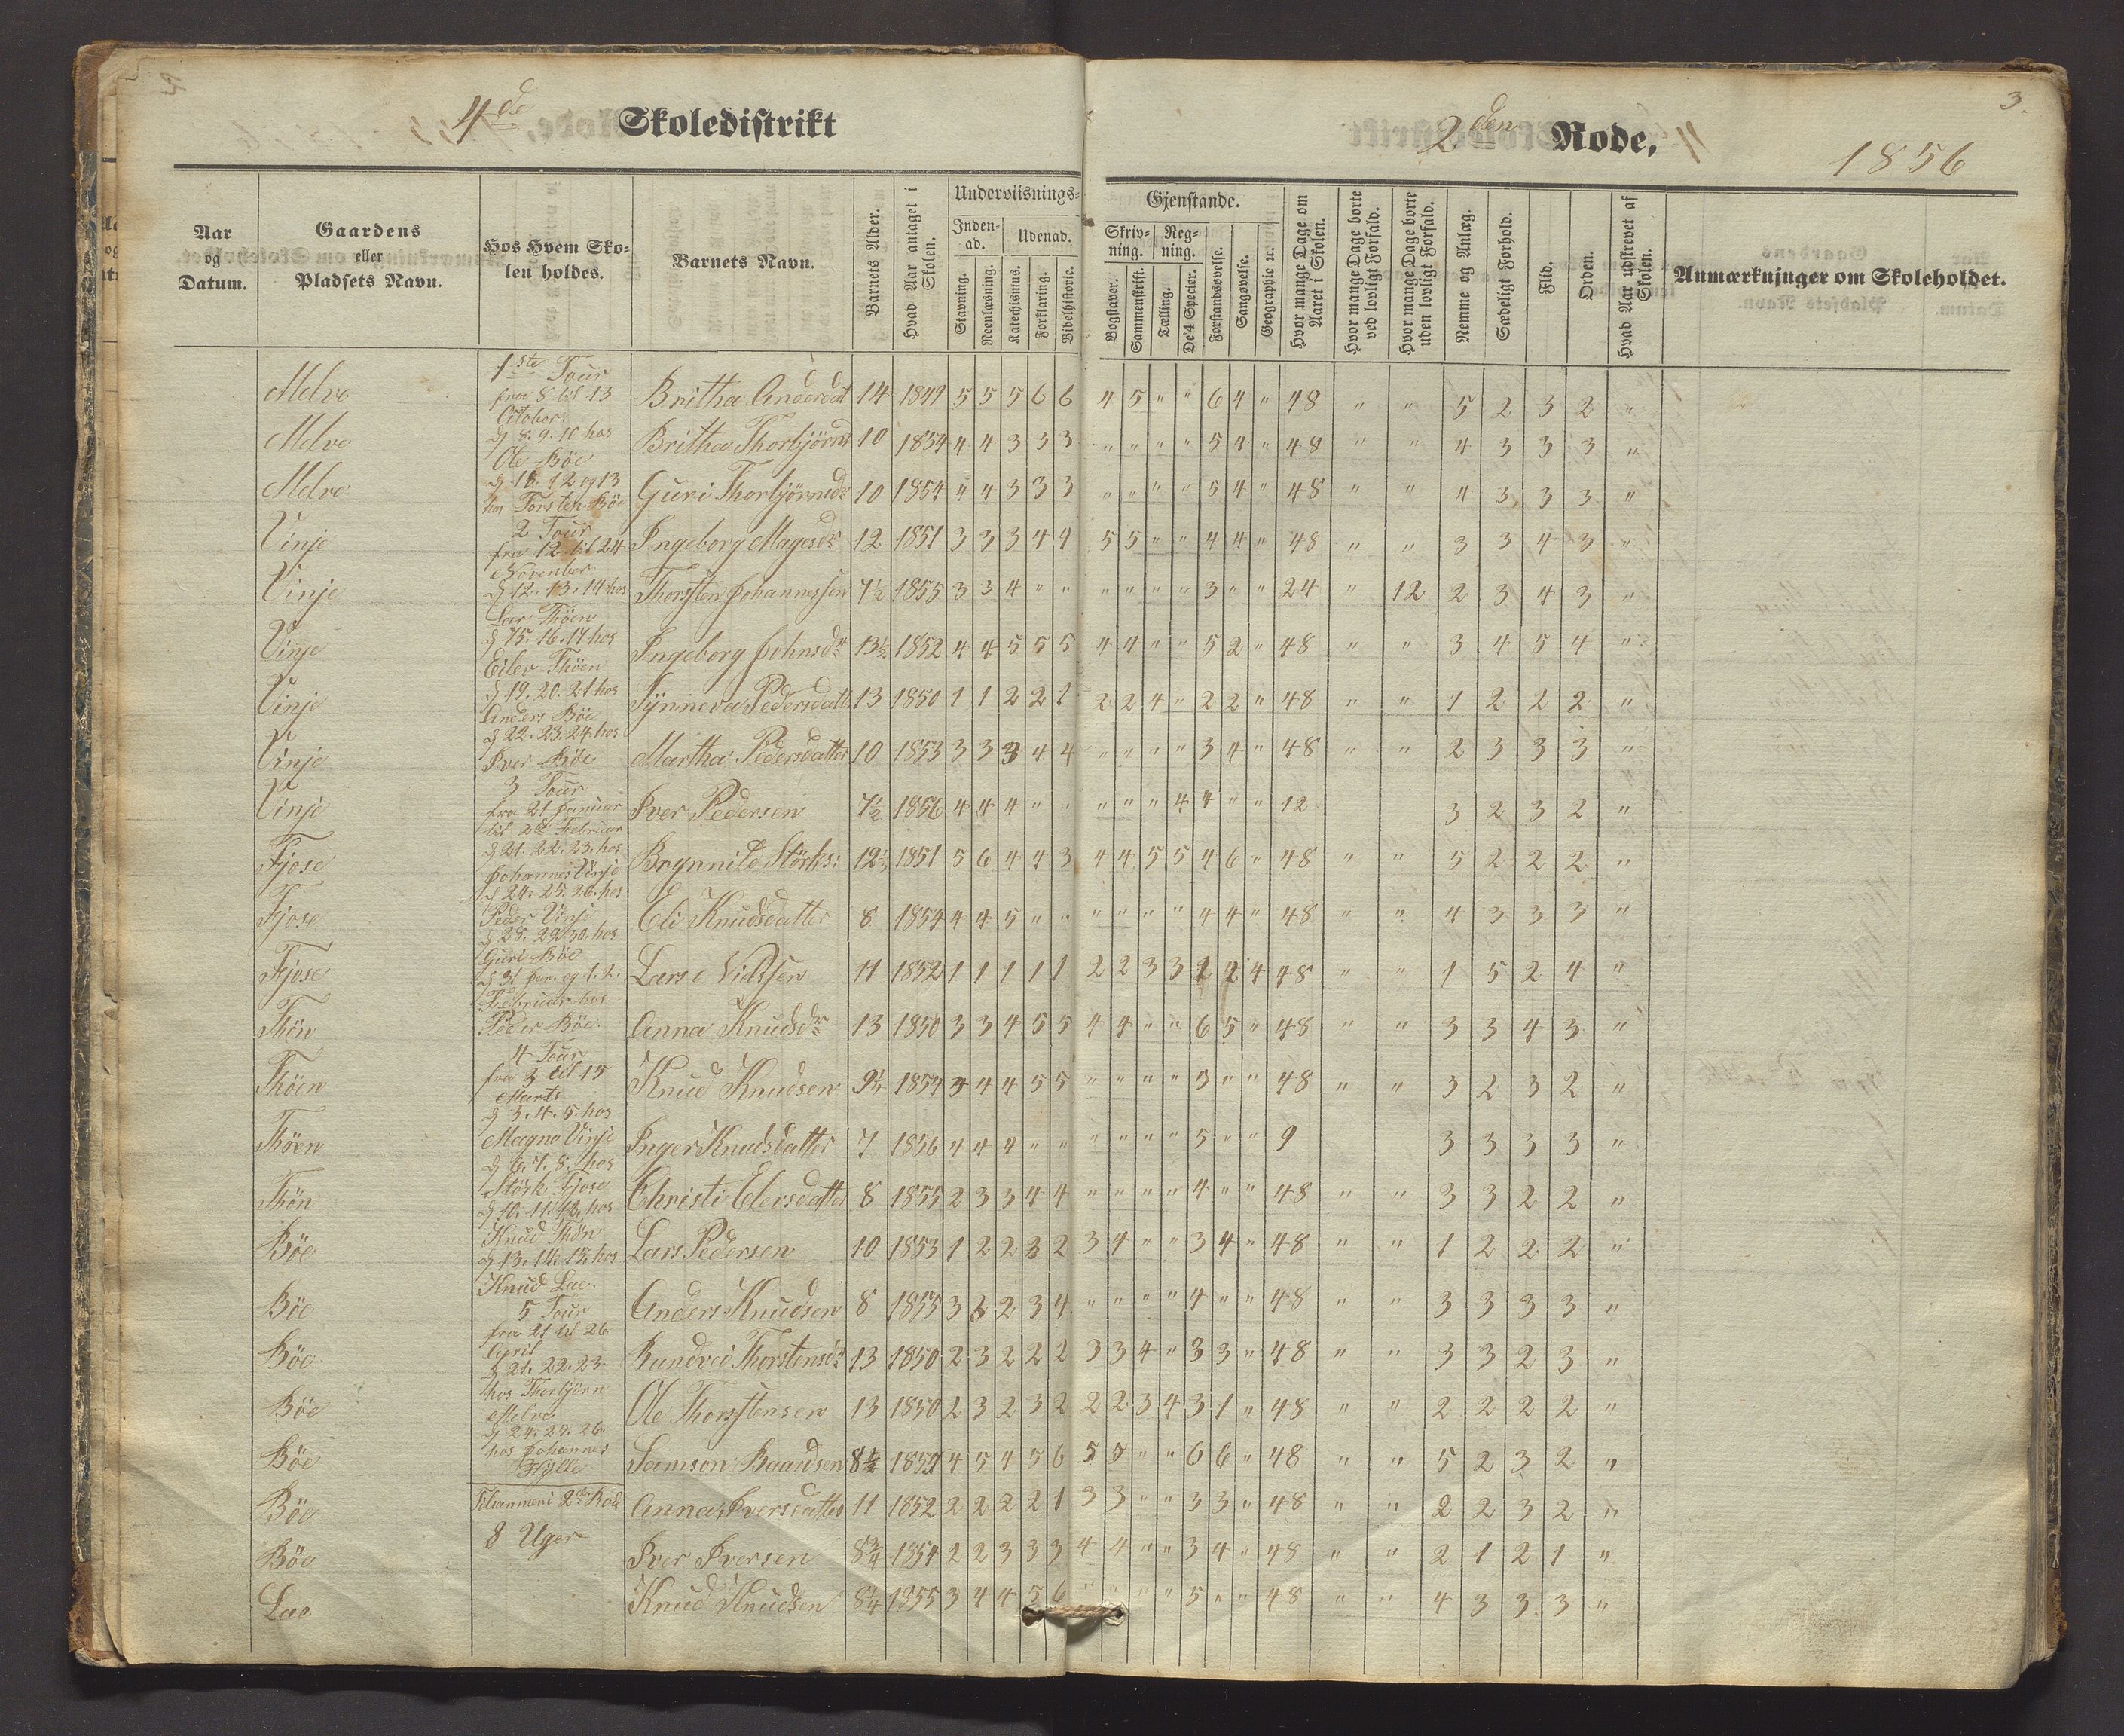 4de Skoledistrikt
2den Rode,
3.
1856
Aar og Datum.
Gaardens eller Pladsets Navn.
Hos Hvem Skolen holdes.
Barnets Navn.
Barnets Alder.
Hvad Aar antaget i Skolen.
Underviisnings-Gjenstande.
Inden-ad.
Udenad.
Skriv-ning.
Reg-ning.
Stavning.
Reenlæsning.
Katechismus.
Forklaring.
Bibelhistorie.
Bogstaver.
Sammenskrift.
Tælling.
De 4 Specier.
Forstandsøvelse.
Sangøvelse.
Geographie ꝛc.
Hvor mange Dage om Aaret i Skolen.
Hvor mange Dage borte ved lovligt Forfald.
Hvor mange Dage borte uden lovligt Forfald.
Nemme og Anlæg.
Sædeligt Forhold.
Flid.
Orden.
Hvad Aar udskrevet af Skolen.
Anmærkninger om Skoleholdet.
1ste Tour
fra 8 til 13
October.
d 8. 9. 10 hos
Ole Böe
d 11. 12 og 13
hos Torsten Böe
2 Tour
fra 12 til 24
November
d 12. 13. 14 hos
Lar Thöen
d 15. 16. 17 hos
Eiler Thöen
d 19. 20. 21 hos
Anders Böe
d 22. 23. 24. hos
Iver Böe
3 Tour
fra 21 Januar
til 2den Februar
d 21. 22. 23. hos
Johannes Vinje
d 24. 25. 26. hos
Peder Vinje
d 28. 29. 30. hos
Guri Böe
d 31 Jan. og 1. 2.
Februar hos
Peder Böe.
4 Tour
fra 3 til 15
Marts
d 3. 4. 5. hos
Magne Vinje
d 6. 7. 8. hos
Störk Fjose
d 10. 11. 12. hos
Knud Thön
d 13. 14. 15. hos
Knud Lae.
5 Tour
fra 21 til 26
April
d 21. 22. 23.
hos Thorbjörn
Melve
d 24. 25. 26.
hos Johannes
Hylle
Tilsammen i 2den Rode
8 Uger
Melve Britha Andersdat 14 1849 5 5 5 6 6 4 5 " " 6 4 " 48 " " 5 2 3 2 "
Melve Britha Thorbjörnsd 10 1854 4 4 3 3 3 " " " " 5 4 " 48 " " 4 3 3 3 "
Melve Guri Thorbjörnsdr 10 1854 4 4 3 3 3 " " " " 5 4 " 48 " " 4 3 3 3 "
Vinje Ingeborg Magnesdr 12 1851 3 3 3 4 4 5 5 " " 4 4 " 48 " " 3 3 4 3 "
Vinje Thorsten Johannessen 7½ 1855 3 3 4 " " " " " " 3 " " 24 " 12 2 3 4 3 "
Vinje Ingeborg Johnsdr 13½ 1852 4 4 5 5 5 4 4 " " 5 2 " 48 " " 3 4 5 4 "
Vinje Synneva Pedersdatt 13 1850 1 1 2 2 1 2 2 4 " 2 2 " 48 " " 1 2 2 2 "
Vinje Martha Pedersdatter 10 1853 3 3 3 4 4 " " " " 3 4 " 48 " " 2 3 3 3 "
Vinje Iver Pedersen 7½ 1856 4 4 4 " " " " " 4 4 " " 12 3 2 3 2 "
Fjose Brynnild Störks: 12½ 1851 5 6 4 4 3 4 4 5 5 4 6 " 48 " " 5 2 2 2 "
Fjose Eli Knudsdatter 8 1854 4 4 5 " " " " " " 4 4 " 48 " " 4 3 3 3 "
Fjose Lars Nielssen 11 1852 1 1 1 1 1 2 2 3 3 1 2 4 48 " " 1 5 2 4 "
Thön Anna Knudsdr 13 1850 3 3 4 5 5 4 4 " " 6 5 " 48 " " 3 3 4 3 "
Thöen Knud Knudsen 9¼ 1854 4 4 4 5 5 " " " " 3 " " 48 " " 3 2 3 2 "
Thöen Inger Knudsdatter 7 1856 4 4 4 " " " " " " 5 " " 9 3 3 3 3 "
Thön Christi Eilersdatter 8 1855 2 3 3 4 4 " " " " 4 " " 48 " " 3 3 2 2 "
Böe Lars Pedersen 10 1853 1 2 2 3 2 3 4 " " 3 4 " 48 " " 1 2 2 2 "
Böe Anders Knudsen 8 1855 3 3 2 3 4 " " " " 4 " " 48 " " 3 3 3 3 "
Böe Randvei Thorstensdr 13 1850 2 3 2 2 2 3 3 4 " 3 3 " 48 " " 3 3 2 3 "
Böe Ole Thorstensen 13 1850 2 3 2 3 2 2 2 3 4 3 1 " 48 " " 2 2 2 2 "
Böe Samson Baardsen 8½ 1854 4 5 4 5 6 5 5 " " 6 6 " 48 " " 5 2 3 2 "
Böe Anna Iversdatter 11 1852 2 2 2 2 1 3 3 " " 3 3 " 48 " " 2 2 3 2 "
Böe Iver Iversen 8¾ 1854 2 2 3 3 3 4 4 " " 3 4 " 48 " " 2 1 2 1 "
Lae Knud Knudsen 8¼ 1855 3 4 4 5 6 " " " " 5 " " 48 " " 4 3 3 3 "